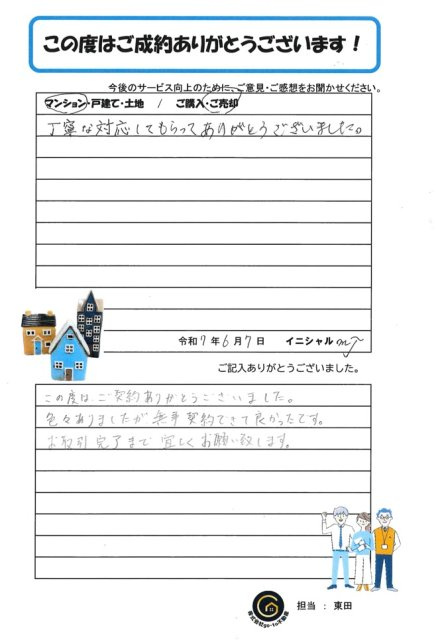 この度はご成約ありがとうございます！
今後のサービス向上のために、ご意見・ご感想をお聞かせください。
マンション・戸建て・土地 / ご購入・ご売却
丁寧な対応してもらってありがとうございました。
令和7年6月7日 イニシャル
ご記入ありがとうございました。
この度はご契約ありがとうございました。
色々ありましたが無事契約できて良かったです。
お取引完了まで宜しくお願い致します。
株式会社go-to不動産
担当 : 東田